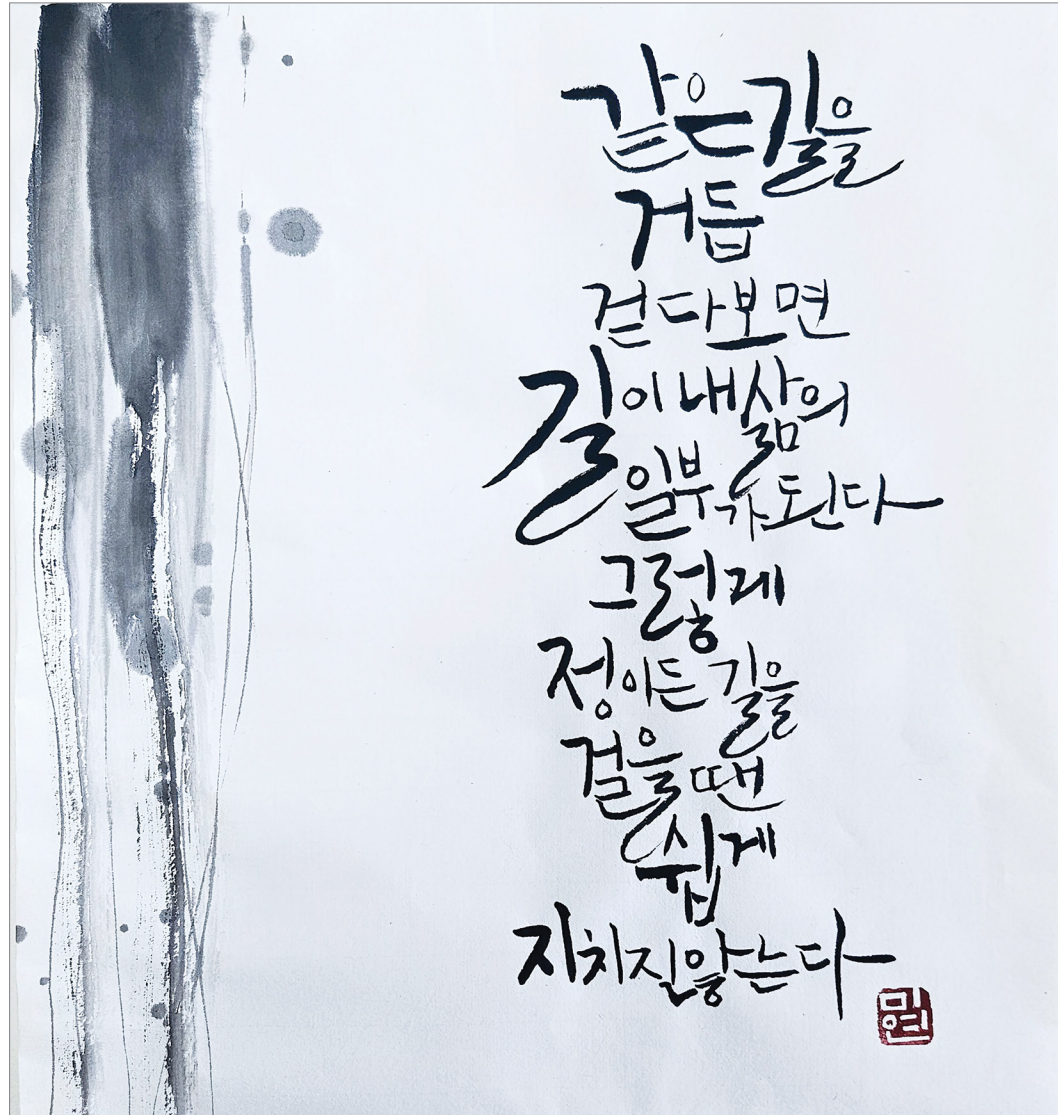 같은 길을
거듭
걷다보면
길이 내 삶의
일부가 된다
그렇게
정이든 길을
걸을 땐
쉽게
지치질 않는다
미연